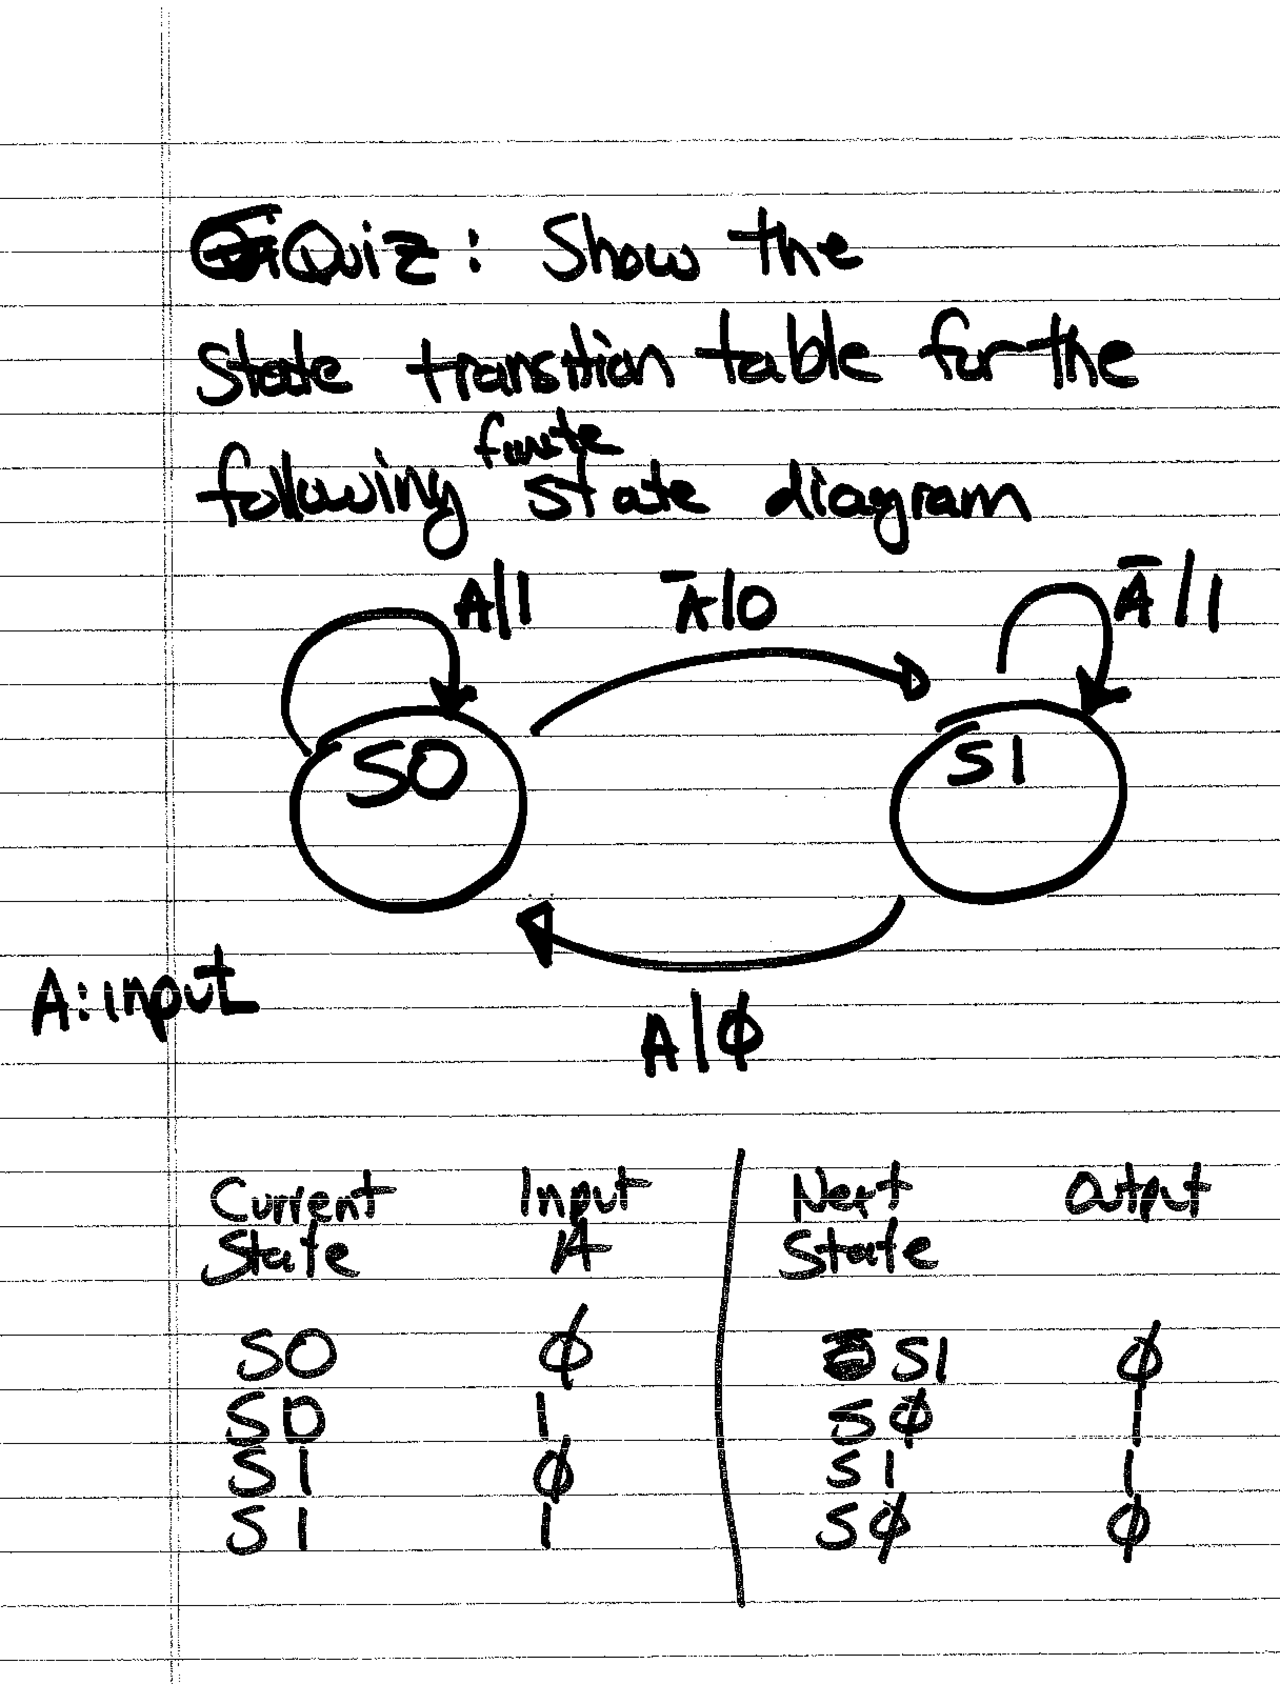 Quiz: Show the
State transition table for the
following finite state diagram
A/1
A̅/0
A̅/1
S0
S1
A: input
A/φ
Current State Input A Next State Output
S0 φ S1 φ
S0 1 Sφ 1
S1 φ S1 1
S1 1 Sφ φ